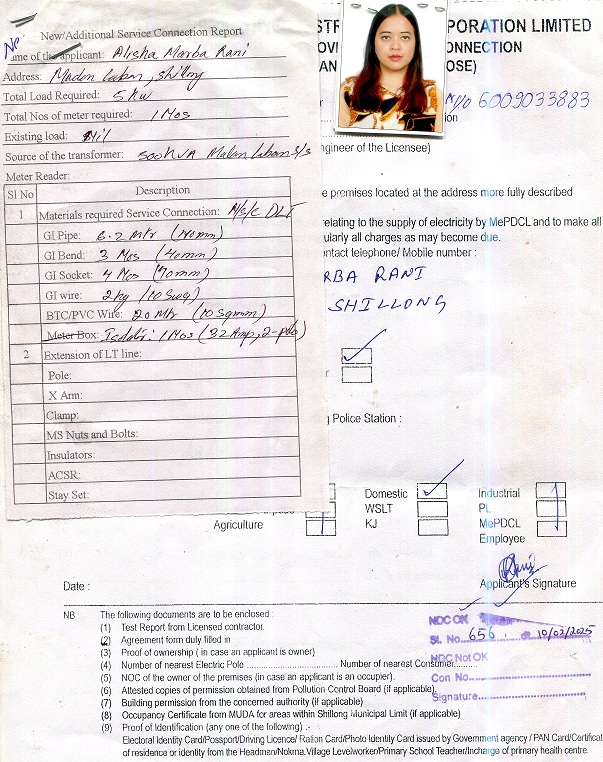 New/Additional Service Connection Report
Name of the applicant: Alisha Marba Rani
Address: Madan Laban, Shillong
Total Load Required: 5 KW
Total Nos of meter required: 1 Nos
Existing load: Nil
Source of the transformer: 500KVA Madan Laban S/S
Meter Reader:
Sl No Description
1 Materials required Service Connection: M/s/c DLT
GI Pipe: 6.2 Mtr (40mm)
GI Bend: 3 Nos (40mm)
GI Socket: 4 Nos (40mm)
GI wire: 2kg (10 Swg)
BTC/PVC Wire: 20 Mtr (10 sqmm)
Meter Box: Isolator: 1 Nos (32 Amp, 2-pole)
2 Extension of LT line:
Pole:
X Arm:
Clamp:
MS Nuts and Bolts:
Insulators:
ACSR:
Stay Set:
PORATION LIMITED
ONNECTION
OSE)
M/O 6009033883
ngineer of the Licensee)
e premises located at the address more fully described
relating to the supply of electricity by MePDCL and to make all
ularly all charges as may become due.
ontact telephone/ Mobile number :
RBA RANI
SHILLONG
g Police Station :
Domestic Industrial
WSLT PL
Agriculture KJ MePDCL
Employee
Date :
Applicant's Signature
NB : The following documents are to be enclosed :
(1) Test Report from Licensed contractor.
(2) Agreement form duly filled in
(3) Proof of ownership ( in case an applicant is owner)
(4) Number of nearest Electric Pole .......................... Number of nearest Consumer..........
(5) NOC of the owner of the premises (in case an applicant is an occupier).
(6) Attested copies of permission obtained from Pollution Control Board (if applicable).
(7) Building permission from the concerned authority (if applicable)
(8) Occupancy Certificate from MUDA for areas within Shillong Municipal Limit (if applicable)
(9) Proof of Identification (any one of the following) :-
Electoral Identity Card/Possport/Driving Licence/ Ration Card/Photo Identity Card issued by Government agency / PAN Card/Certificat
of residence or identity from the Headman/Nokma.Village Levelworker/Primary School Teacher/Incharge of primary health centre.
NDC OK
Sl. No. 656 10/02/2025
NDC Not OK
Con No
Signature